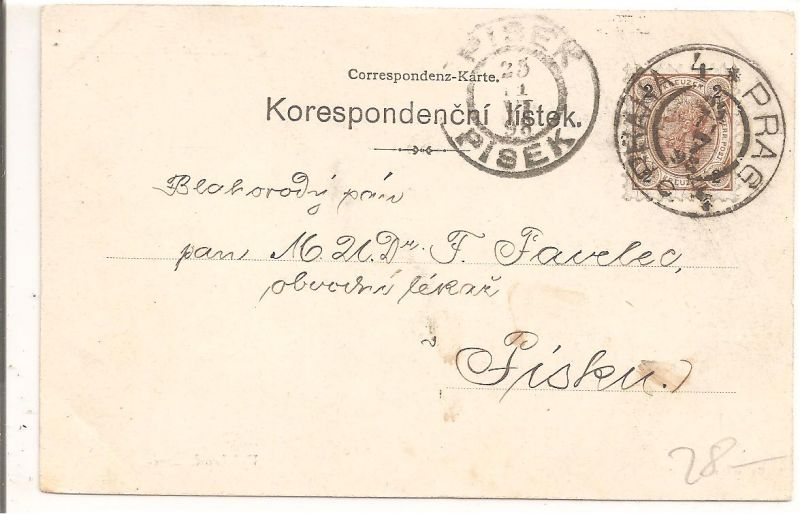 PISEK
25
11
PÍSEK
4
PRAG
PRAHA
2
2
KREUZER
Correspondenz-Karte.
Korespondenční lístek.
Blahorodý pán
pan M.U.Dr. F. Favelec,
obvodní lékař
v
Písku.
28—